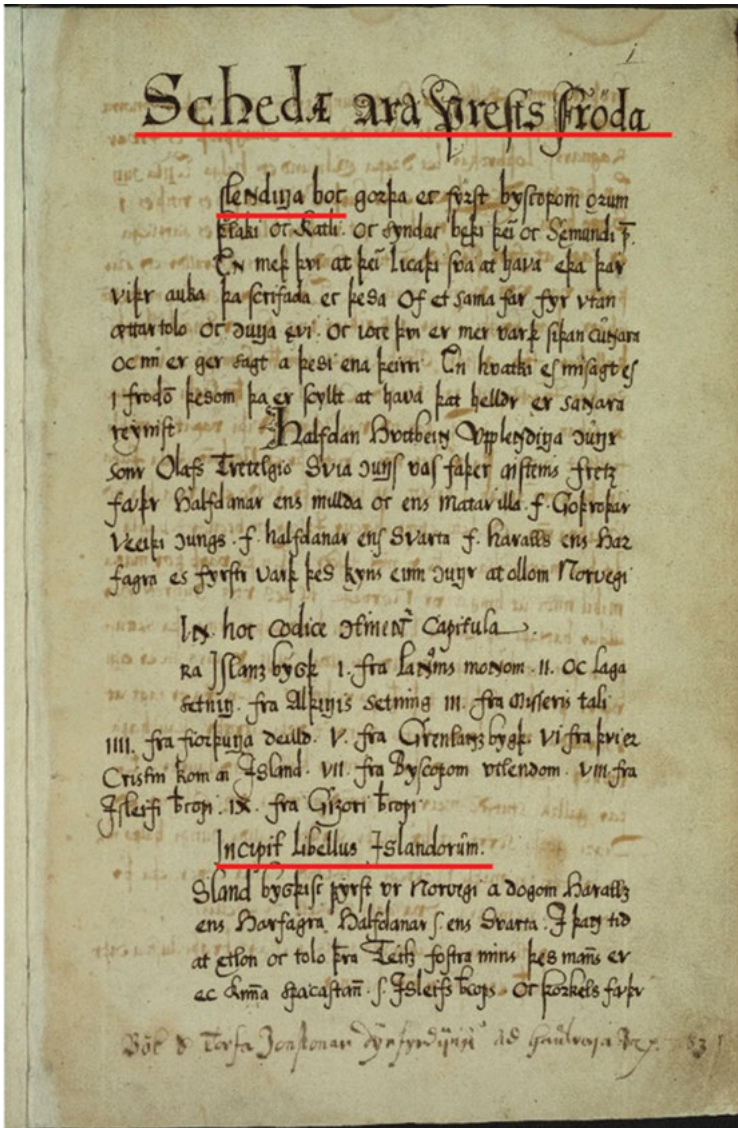 i
Schedæ ara prests fröda
slendiga boc gorþa ec fyrst byscopom orum
þorlaki oc Katli. oc syndac beþi þeī oc Semundi p̄.
En meþ þvi at þeī licaþi sva at hava eþa þar
viþr auka þa scrifaða ec þesa of et sama far fyr vtan
ættartolo oc ɔuga evi. oc iocc þvi er mer varþ siþan cūnara
oc nu er ger sagt a þesi ena þeirri. En hvatki es misagt es
i frodō þesom þa er scyllt at hava þat helldr er saɴara
reynist Halfdan hvitbeiɴ Vpplendiga ɔugr
sonr Olafs Tretelgio Svia ɔugs vas faþer aysteins fretz
faþur Halfdanar ens millda oc ens matarilla. f. Goþroþar
Veiþi ɔungs. f. halfdanar ens Svarta f. haralls ens Har
fagra es fyrstr varþ þes kyns einn ɔugr at ollom Norvegi
Iɴ. hoc codice ɔtineɴt̄ Capitula.
ra Islanz bygþ I. fra laɴams moɴom. II. Oc laga
setnig. fra Alþigis setning III. fra Misseris tali
IIII. fra fiorþuga deilld. V. fra Grenlanz bygþ. VI fra þvi er
Cristni kom a Island. VII. fra Byscopom vtlendom. VIII. fra
Isleifi b̄copi. IX. fra Gizori b̄copi
Incipit Libellus Islandorum.
Sland bygþisc fyrst vr Norvegi a dogom Harallz
ens Harfagra. Halfdanar s. ens Svarta. I þaɴ tid
at ętlon oc tolo þra Teitz fostra mins þes maɴs er
ec kuɴa spacastan̄. s. Isleifs b̄cops. oc þorkels faþur
Bök S Torfa Jonssonar